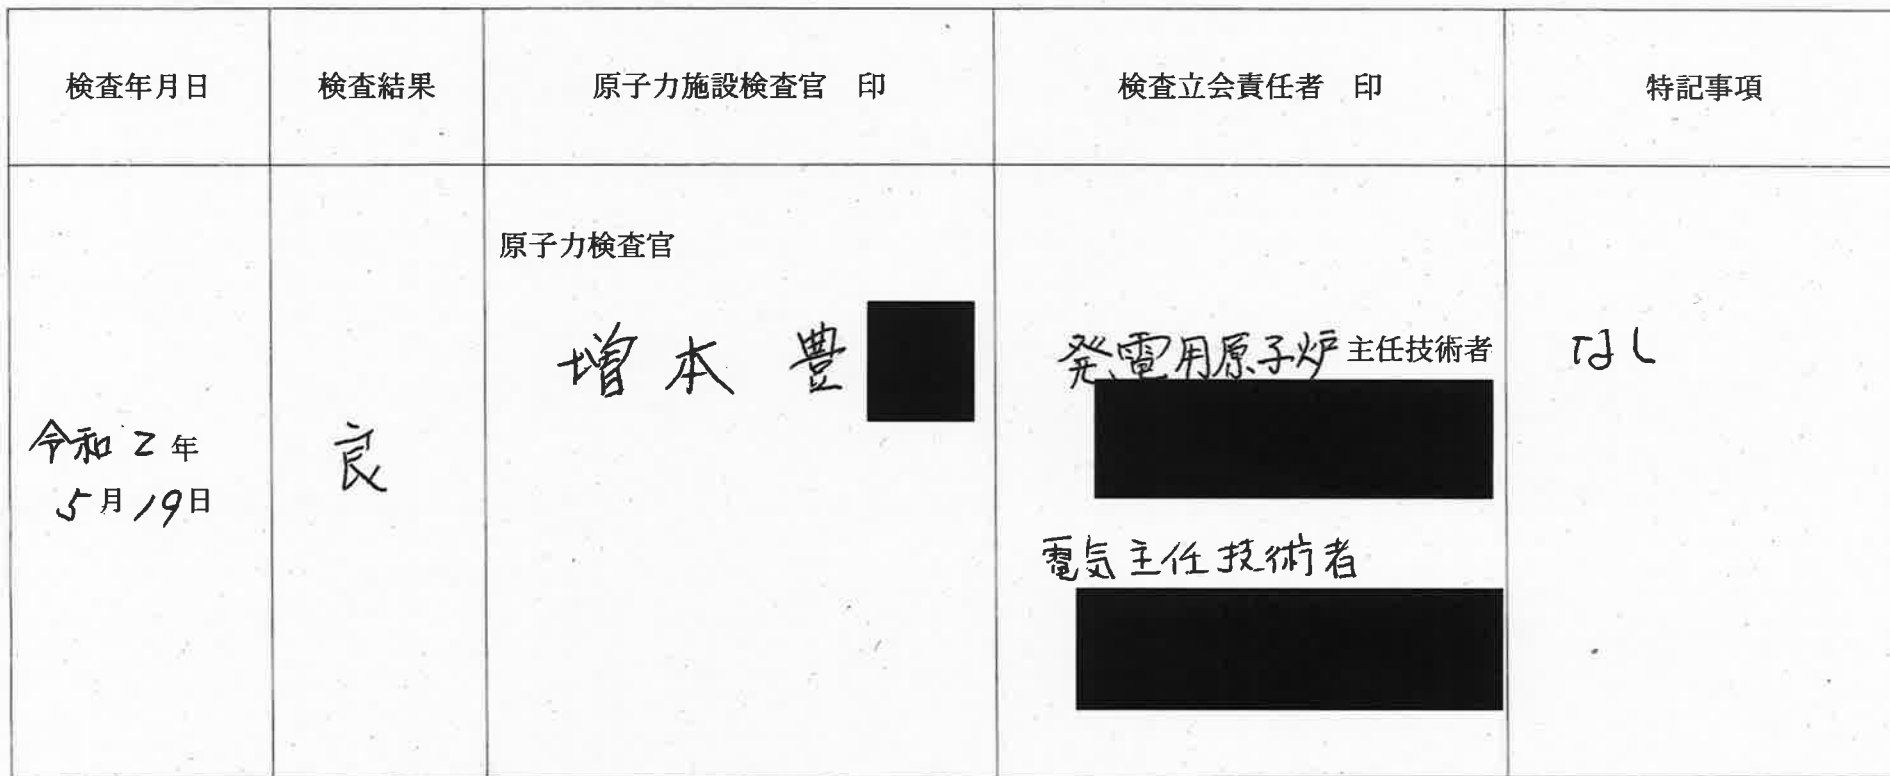 検査年月日
検査結果
原子力施設検査官 印
検査立会責任者 印
特記事項
令和2年
5月19日
良
原子力検査官
増本 豊
発電用原子炉主任技術者
電気主任技術者
なし